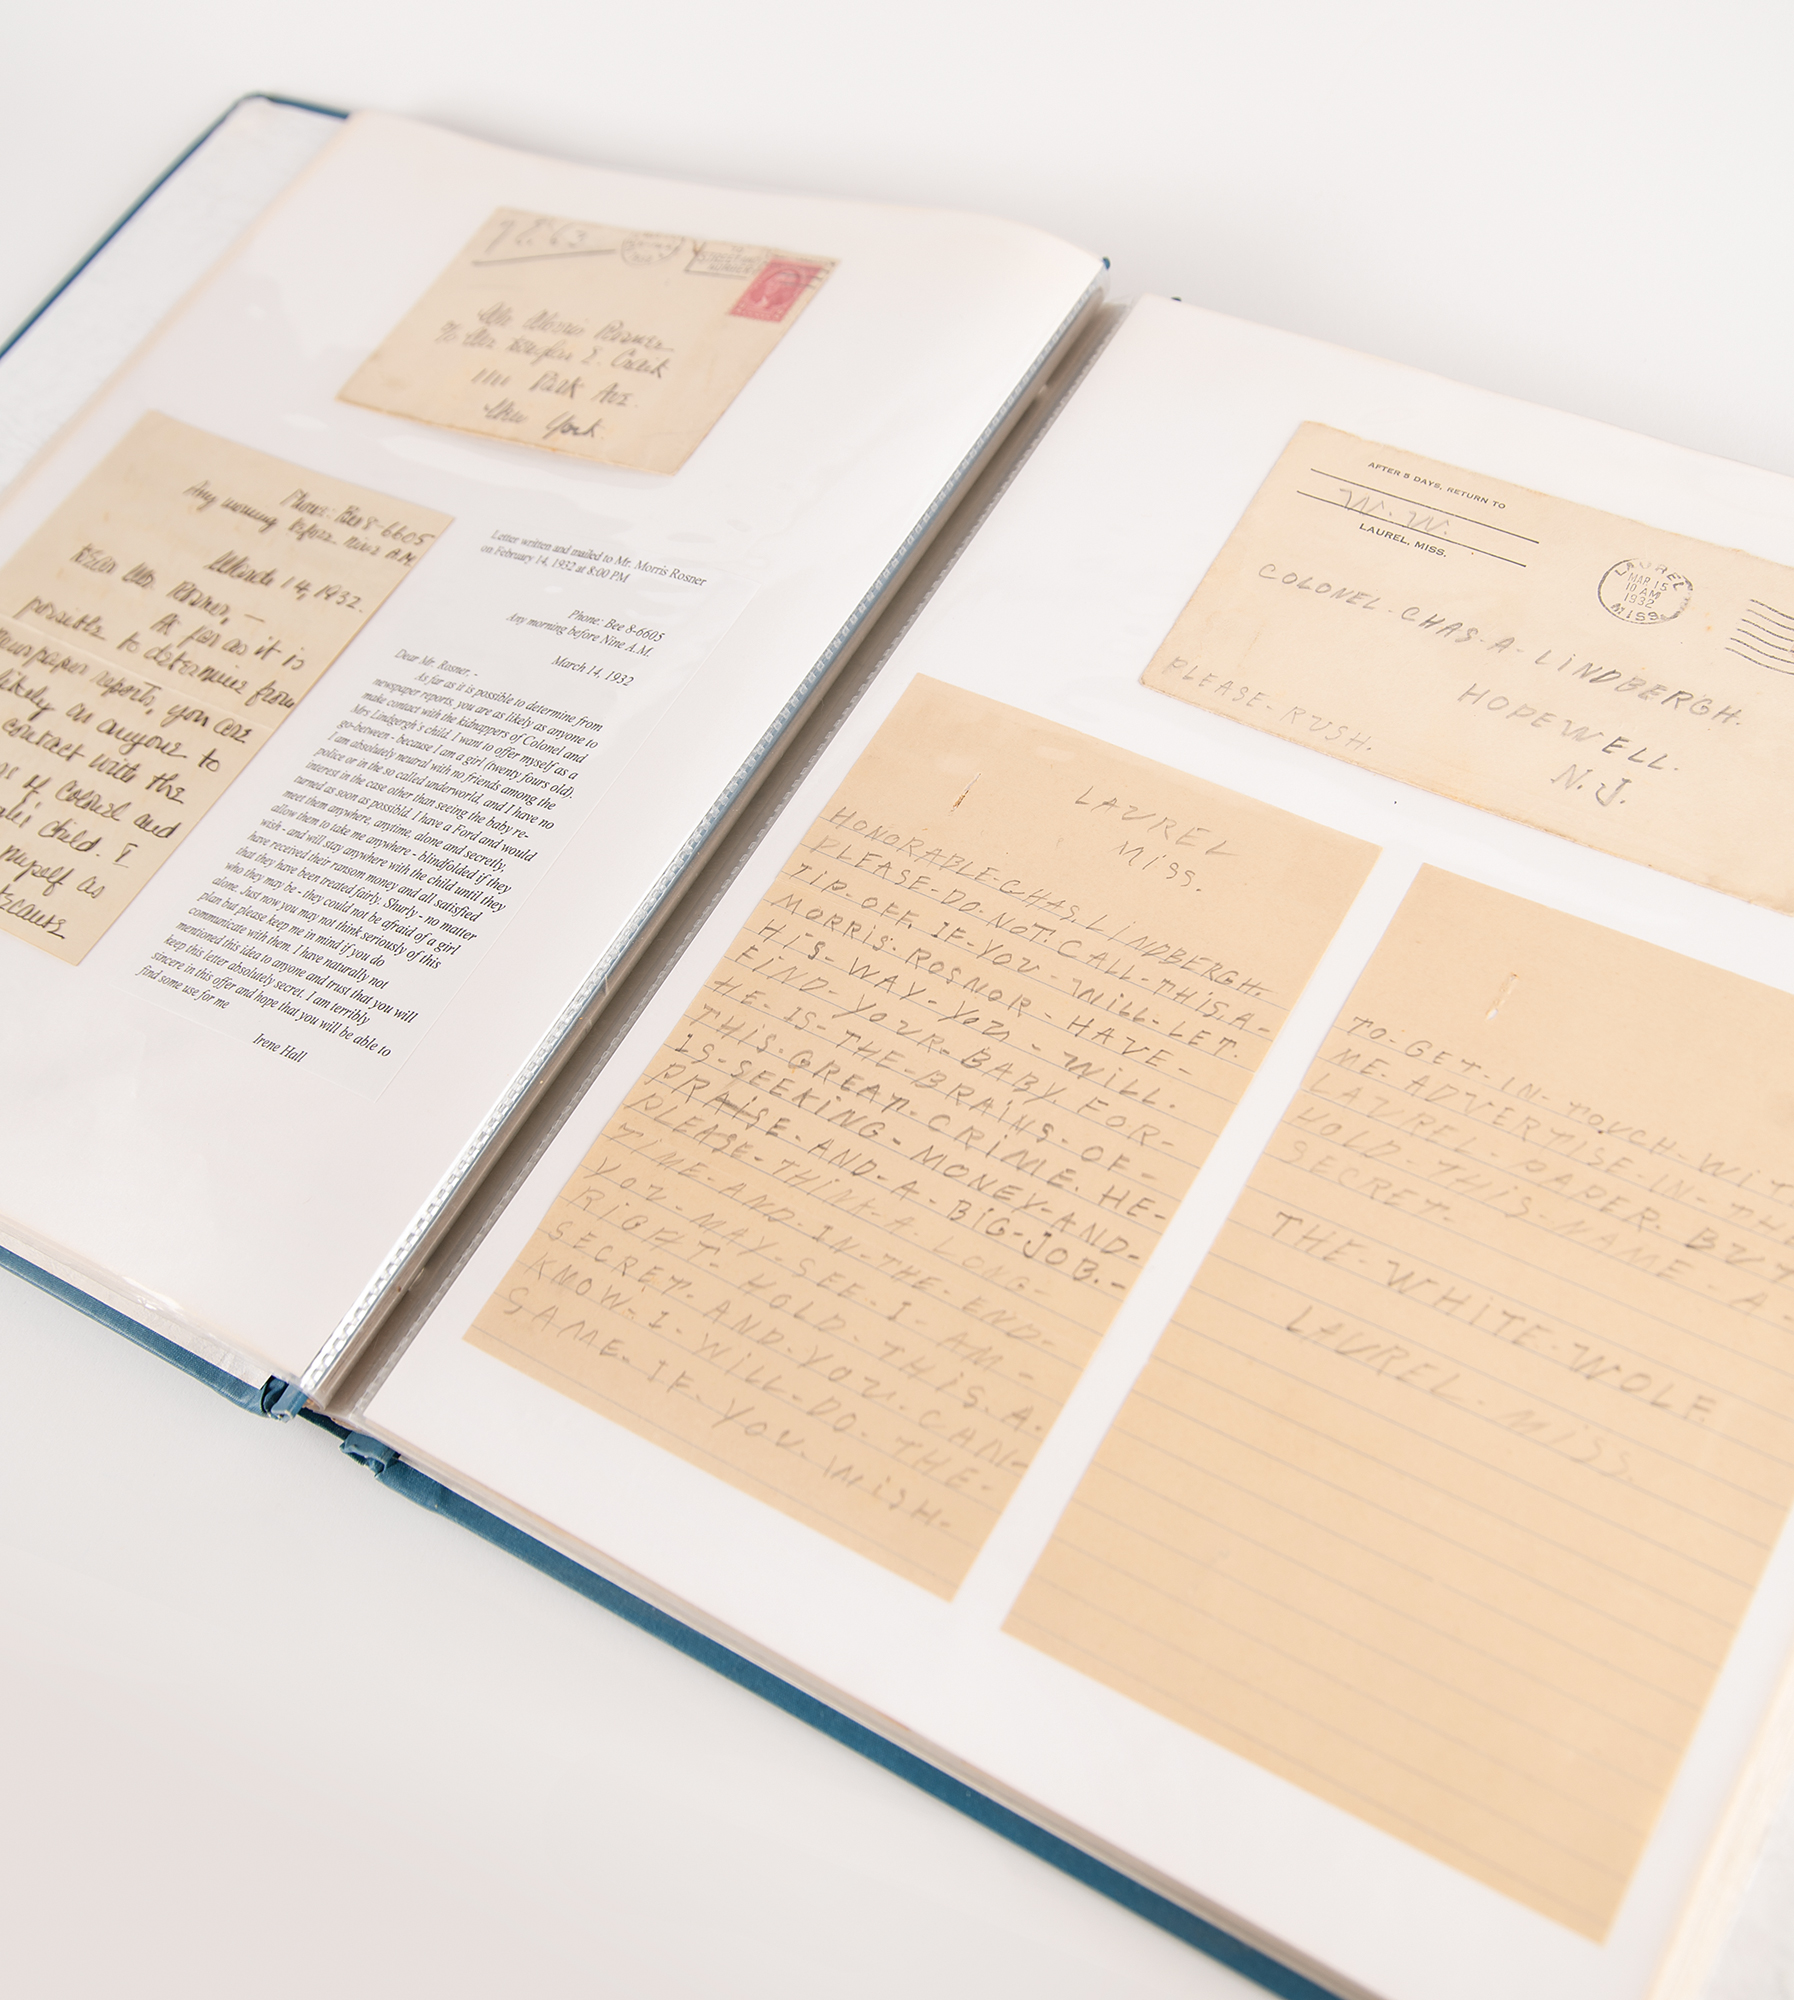 Mr Morris Rosner
c/o Mr Douglas I. Craik
1111 Park Ave.
New York.
Phone: Bee 8-6605
Any morning before nine A.M.
March 14, 1932.
Dear Mr. Rosner, —
As far as it is
possible to determine from
newspaper reports, you are
likely as anyone to
contact with the
of Colonel and
child. I
myself as
because
Letter written and mailed to Mr. Morris Rosner
on February 14, 1932 at 8:00 PM
Phone: Bee 8-6605
Any morning before Nine A.M.
March 14, 1932
Dear Mr. Rosner, -
As far as it is possible to determine from
newspaper reports, you are as likely as anyone to
make contact with the kidnappers of Colonel and
Mrs Lindgergh's child. I want to offer myself as a
go-between - because I am a girl (twenty fours old).
I am absolutely neutral with no friends among the
police or in the so called underworld, and I have no
interest in the case other than seeing the baby re-
turned as soon as possibld. I have a Ford and would
meet them anywhere, anytime, alone and secretly,
allow them to take me anywhere - blindfolded if they
wish - and will stay anywhere with the child until they
have received their ransom money and all satisfied
that they have been treated fairly. Shurly - no matter
who they may be - they could not be afraid of a girl
alone. Just now you may not think seriously of this
plan but please keep me in mind if you do
communicate with them. I have naturally not
mentioned this idea to anyone and trust that you will
keep this letter absolutely secret. I am terribly
sincere in this offer and hope that you will be able to
find some use for me
Irene Hall
AFTER 5 DAYS, RETURN TO
W. W.
LAUREL, MISS.
LAUREL
MAR 15
10 AM
1932
MISS
COLONEL-CHAS-A-LiNDBERGH.
HOPEWELL.
N.J.
PLEASE-RUSH.
LAUREL
MiSS.
HONORABLE-CHAS. LiNDBERGH.
PLEASE-DO-NOT. CALL-THiS. A-
TIP-OFF. IF-YOU-WiLL-LET.
MORRIS-ROSNOR-HAVE-
HiS-WAY-YOU-WiLL.
FIND-YOUR-BABY. FOR-
HE-IS-THE-BRAiNS-OF-
THIS-GREAT-CRiME. HE-
IS-SEEKING-MONEY-AND-
PRAISE-AND-A-BiG-JOB.-
PLEASE-THINK-A-LONG-
TIME-AND-IN-THE-END-
YOU-MAY-SEE-I-AM-
RiGHT-HOLD-THiS. A.
SECRET-AND-YOU-CAN-
KNOW-I-WiLL-DO-THE-
SAME-IF-YOU-WiSH-
TO-GET-IN-TOUCH-WIT
ME ADVERTISE-IN-THE
LAUREL-PAPER-BUT
HOLD-THiS-NAME-A-
SECRET-
THE-WHiTE-WOLF.
LAUREL-MISS.